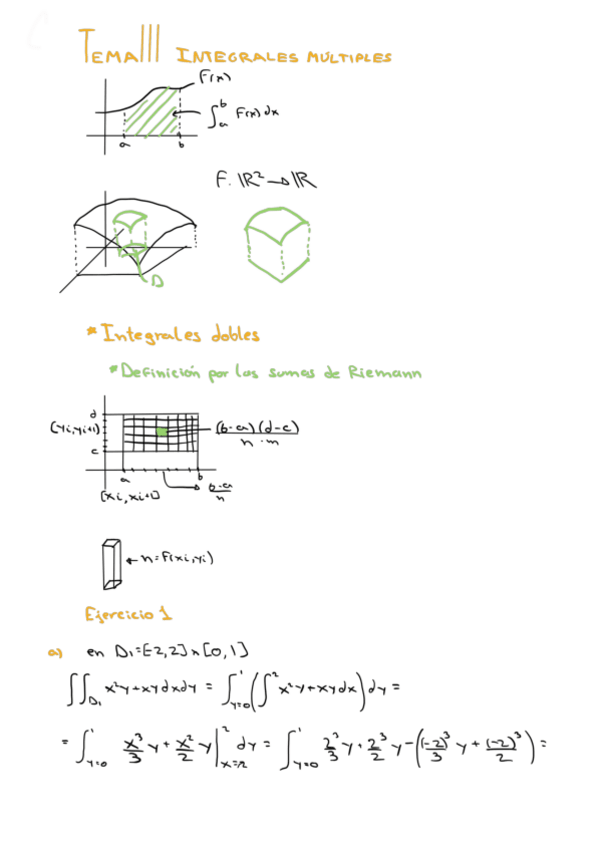 TEMA III INTEGRALES MÚLTIPLES
F(x)
∫_a^b F(x) dx
a b
F: ℝ² → ℝ
D
* Integrales dobles
* Definición por las sumas de Riemann
d
[yi, yi+1]
(b-a)(d-c) / n·m
c
a b
[xi, xi+1]
b-a / n
← h = F(xi, yi)
Ejercicio 1
a) en D₁=[-2,2]x[0,1]
∬_D₁ x²y+xy dxdy = ∫_{y=0}^1 (∫^2 x²y+xy dx) dy =
= ∫_{y=0}^1 x³/3 y + x²/2 y |_{x=-2}^2 dy = ∫_{y=0}^1 2³/3 y + 2³/2 y - ((-2)³/3 y + (-2)³/2) =